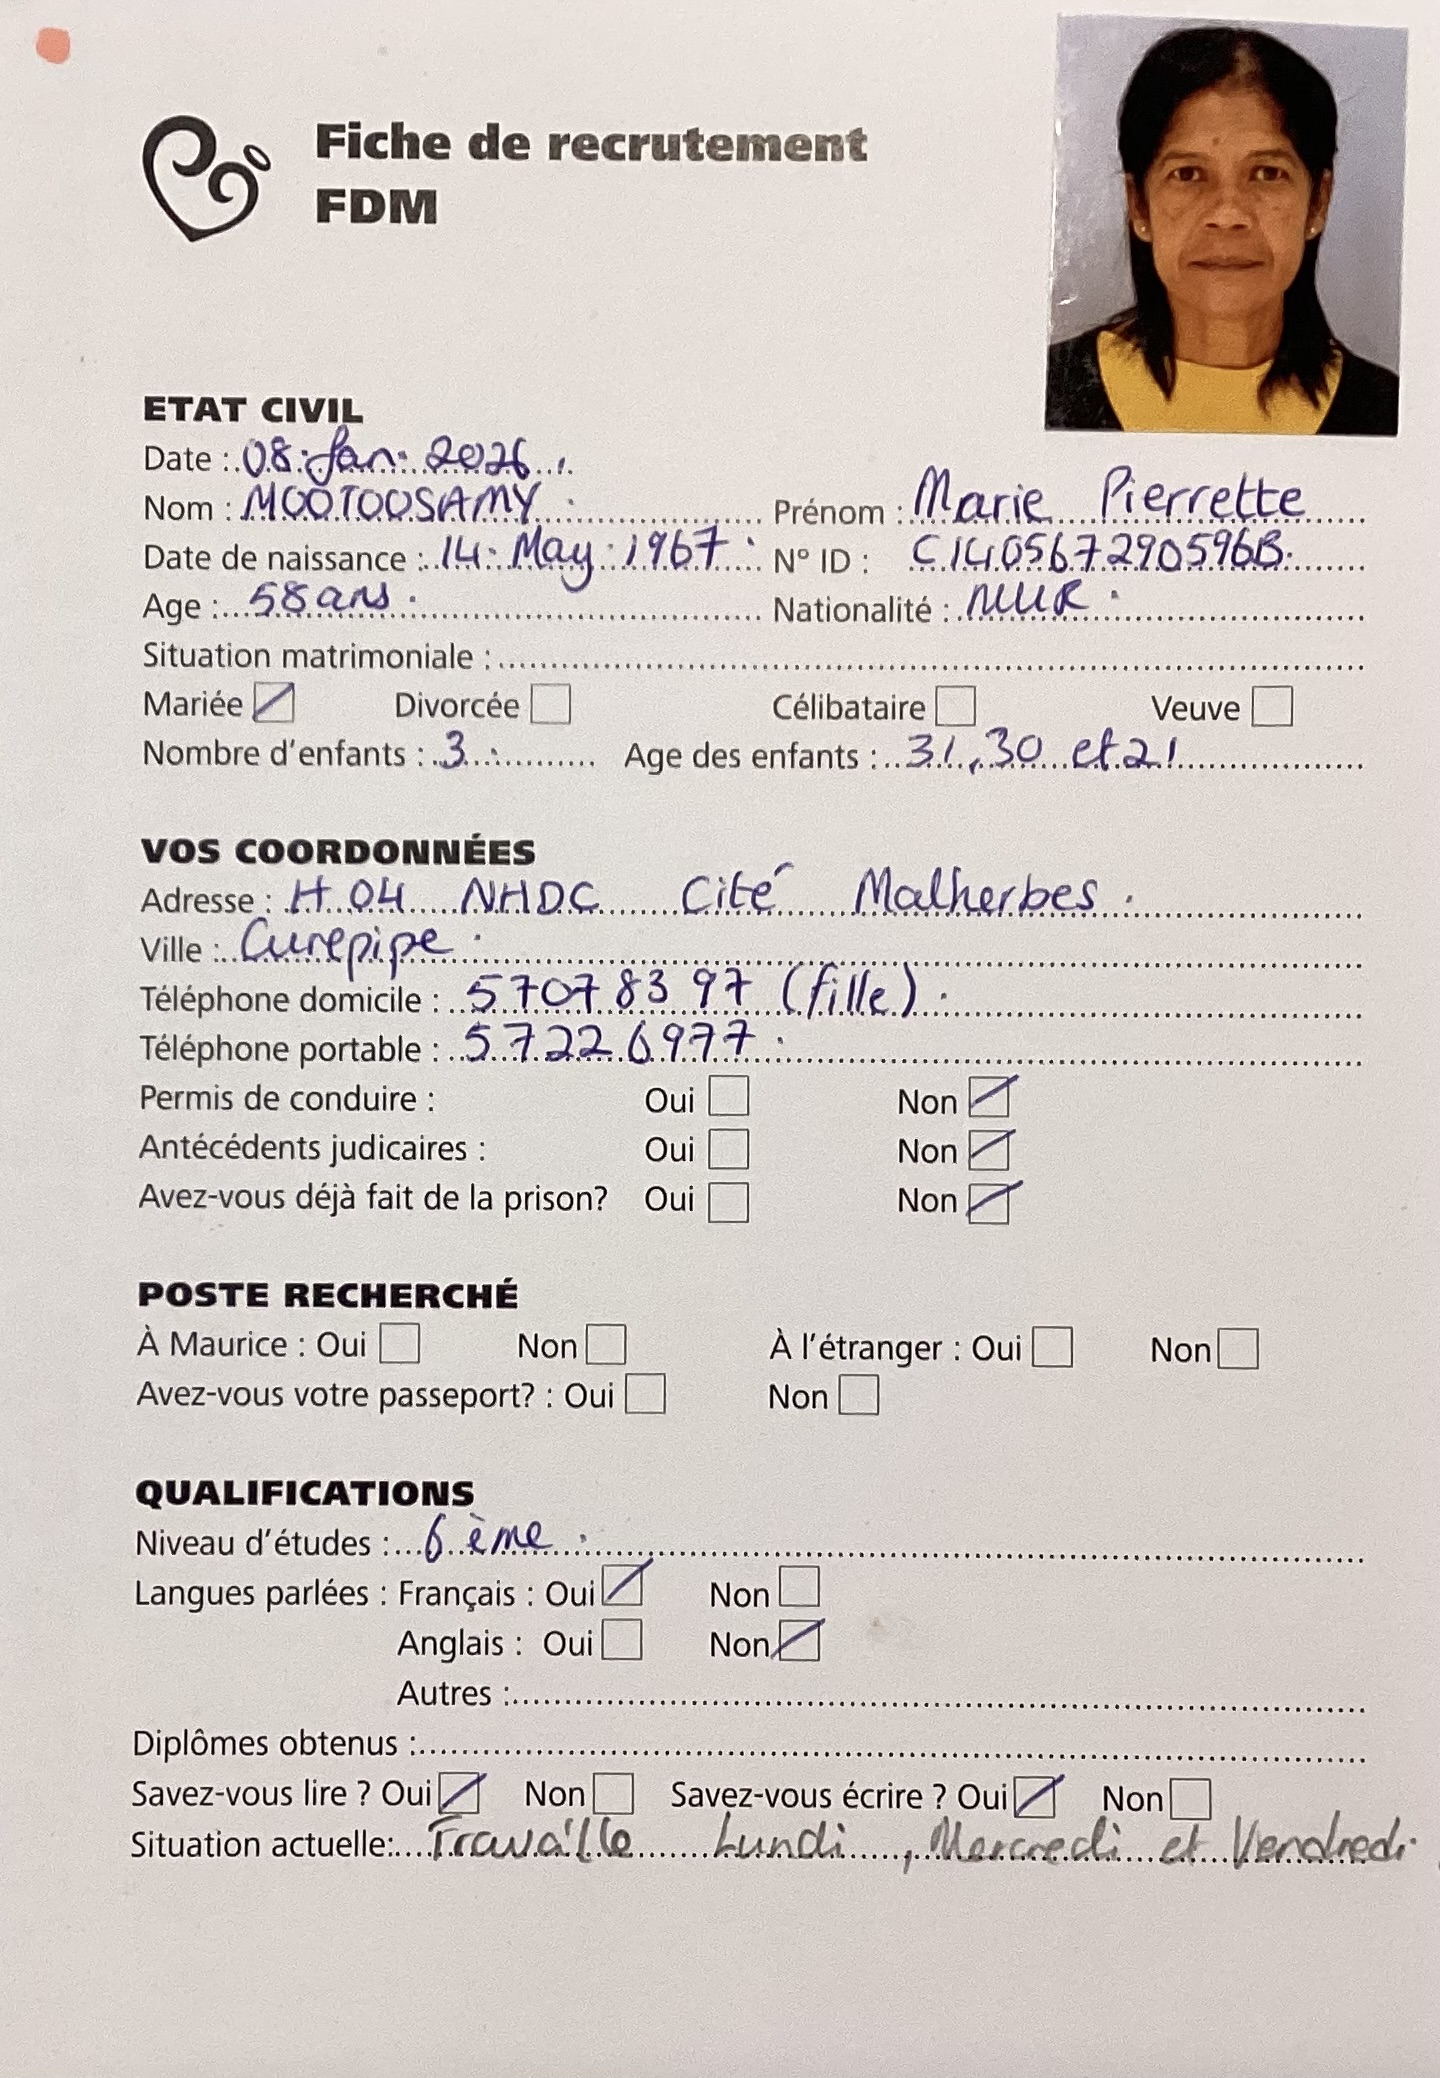 Fiche de recrutement
FDM
ETAT CIVIL
Date : 08 Jan 2026
Nom : MOOTOOSAMY Prénom : Marie Pierrette
Date de naissance : 14 May 1967 N° ID : C140567290596B
Age : 58 ans Nationalité : MUR
Situation matrimoniale :
Mariée Divorcée Célibataire Veuve
Nombre d'enfants : 3 Age des enfants : 31, 30 et 21
VOS COORDONNÉES
Adresse : H 04 NHDC Cité Malherbes
Ville : Curepipe
Téléphone domicile : 5707 83 97 (fille)
Téléphone portable : 5722 6977
Permis de conduire : Oui Non
Antécédents judicaires : Oui Non
Avez-vous déjà fait de la prison? Oui Non
POSTE RECHERCHÉ
À Maurice : Oui Non À l'étranger : Oui Non
Avez-vous votre passeport? : Oui Non
QUALIFICATIONS
Niveau d'études : 6 ème
Langues parlées : Français : Oui Non
Anglais : Oui Non
Autres :
Diplômes obtenus :
Savez-vous lire ? Oui Non Savez-vous écrire ? Oui Non
Situation actuelle: Travaille Lundi, Mercredi et Vendredi